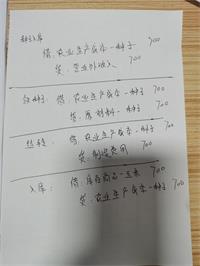 种子入库
借:农业生产成本—种子 700
贷:营业外收入 700
领种子:借:农业生产成本—种子 700
贷:原材料—种子 700
结转:借:农业生产成本—种子 700
贷:制造费用 700
入库:借:库存商品—玉米 700
贷:农业生产成本—种子 700